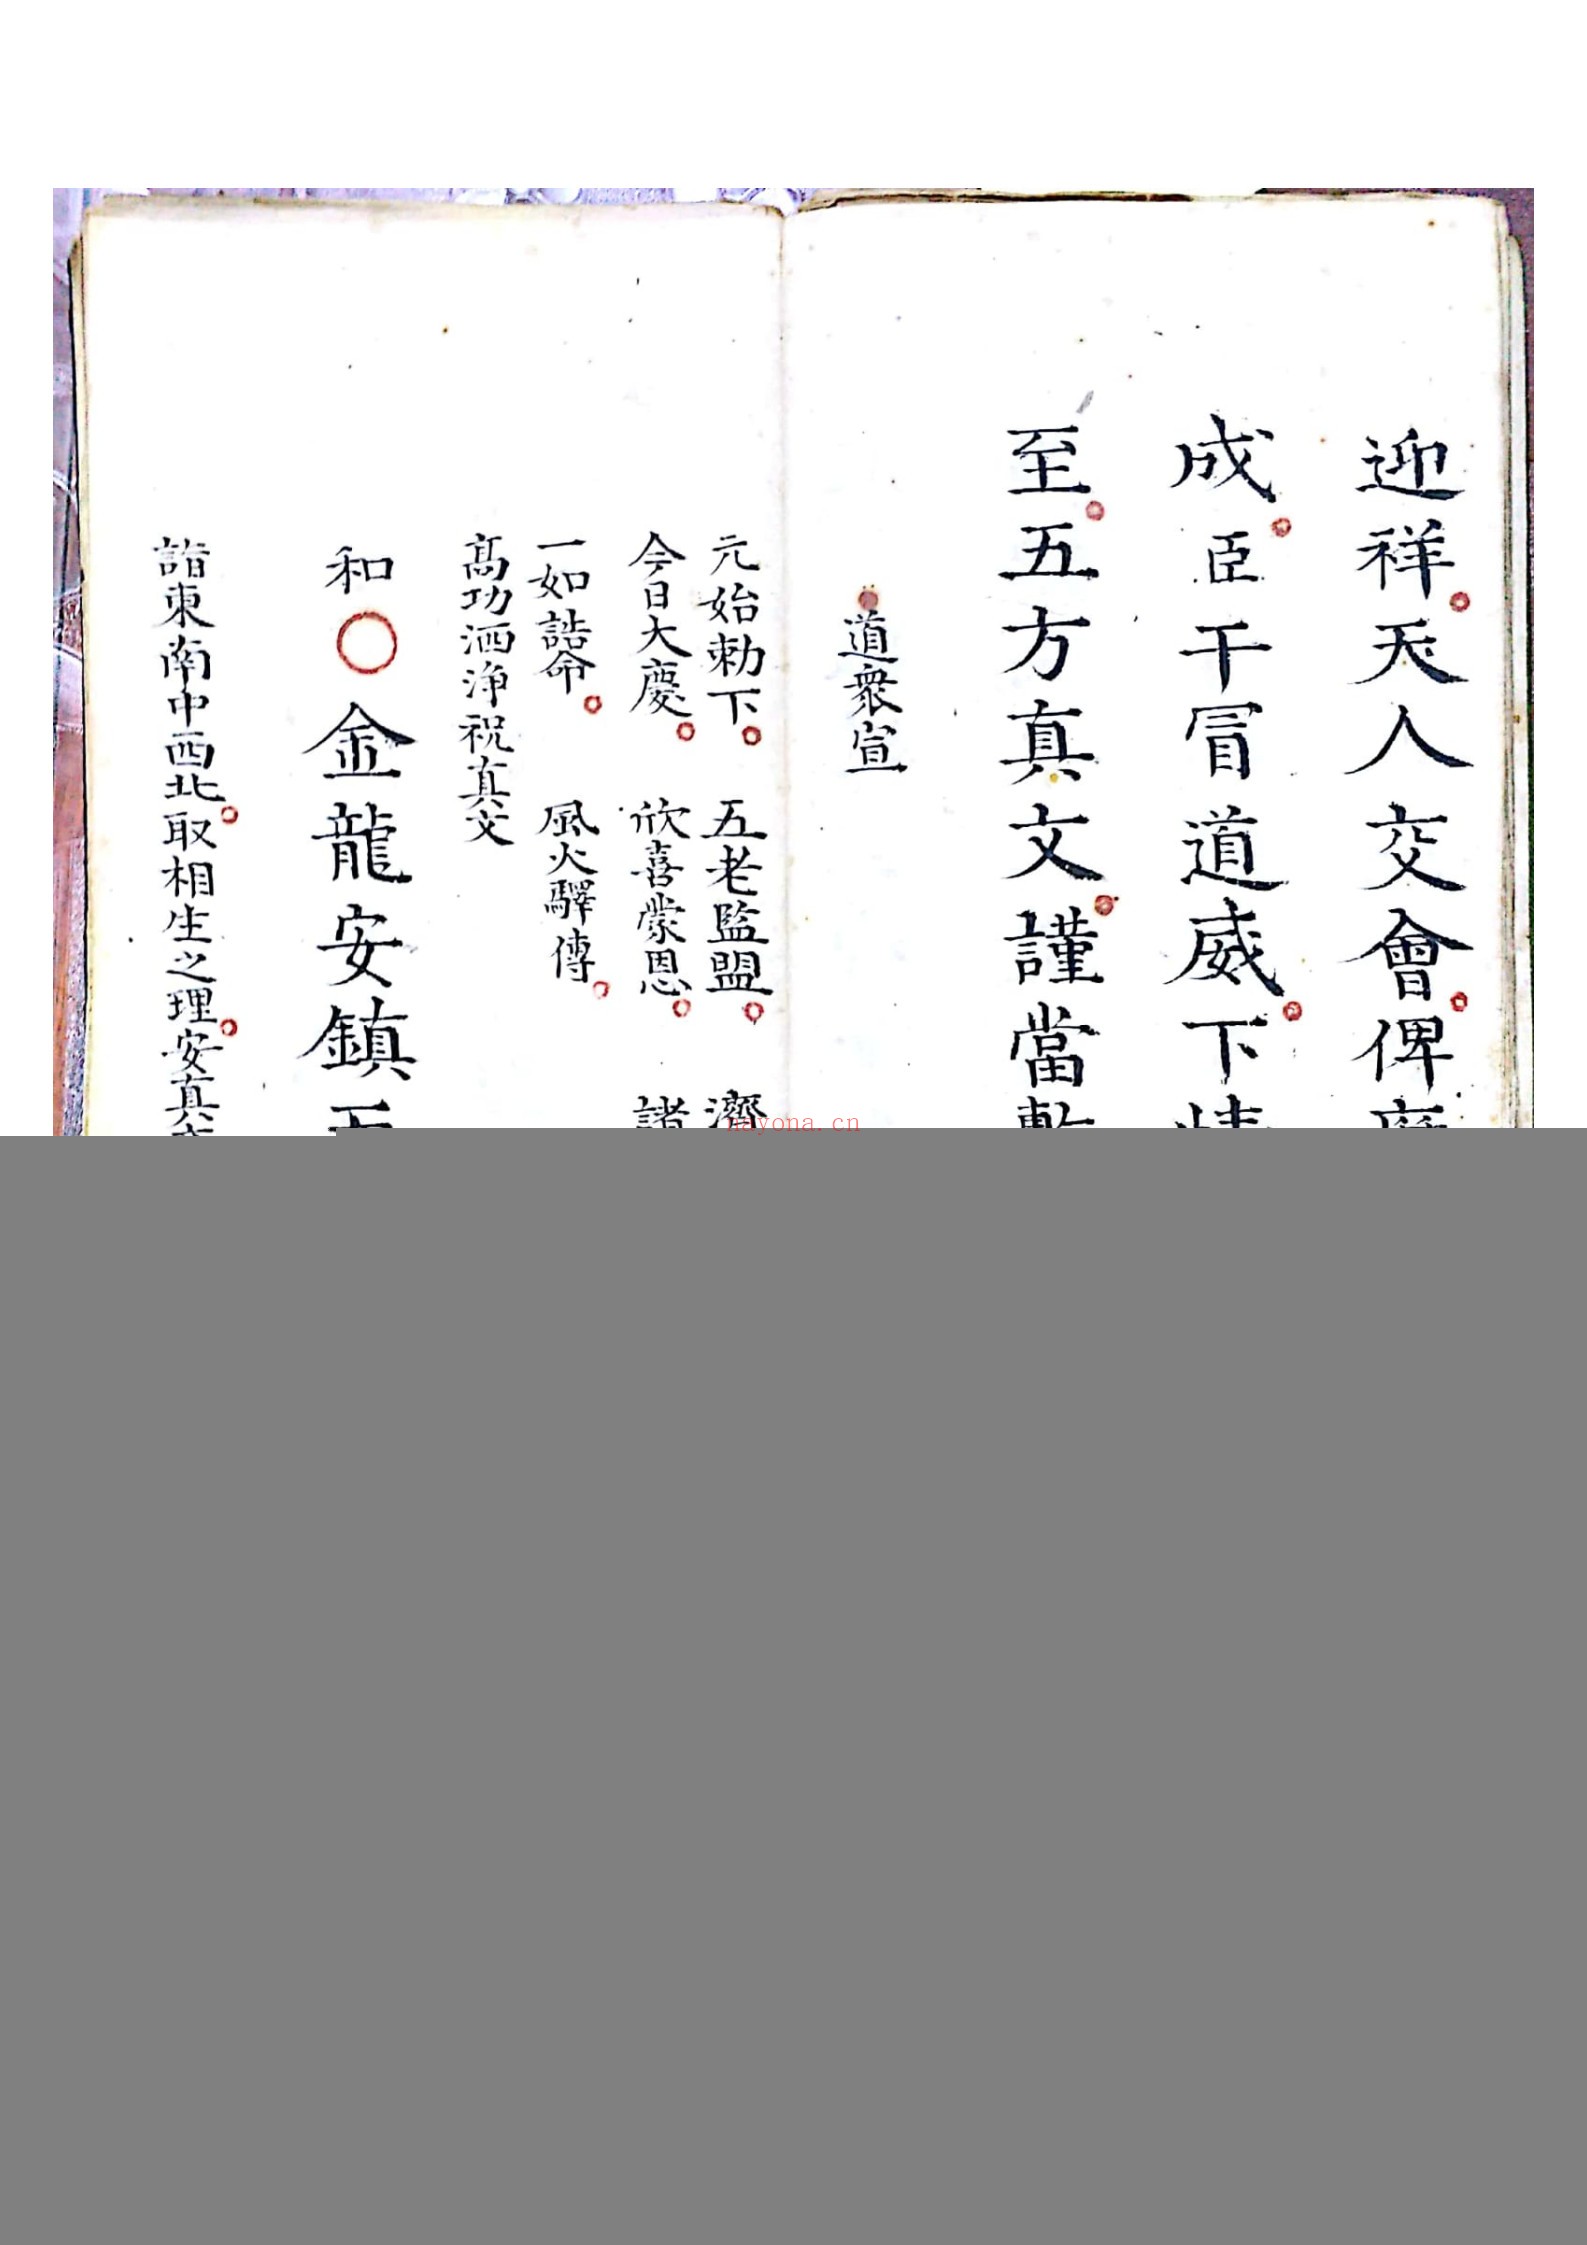 迎祥。天人交會。俾
成。臣干冒道威。下情
至。五方真文。謹當
道衆宣
元始勅下。 五老監盟。 濟
今日大慶。 欣喜蒙恩。 諸
一如誥命。 風火驛傳。
高功洒淨祝真文
和○金龍安鎮五
詣東南中西北。取相生之理。安真文
nayona.cn